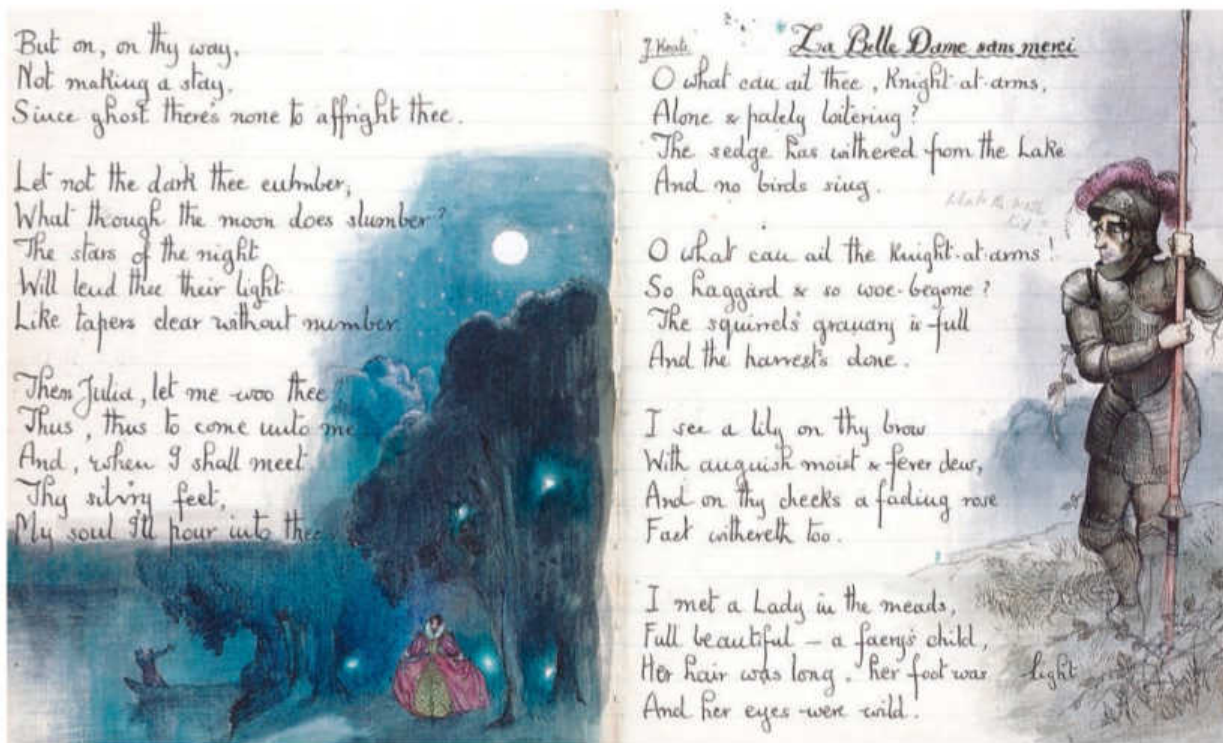 But on, on thy way,
Not making a stay,
Since ghost there's none to affright thee.
Let not the dark thee cumber,
What though the moon does slumber?
The stars of the night
Will lend thee their light
Like tapers clear without number.
Then Julia, let me woo thee
Thus, thus to come unto me
And, when I shall meet
Thy silv'ry feet,
My soul I'll pour into thee.
J. Keats La Belle Dame sans merci
O what can ail thee, Knight-at-arms,
Alone & palely loitering?
The sedge has withered from the Lake
And no birds sing.
O what can ail the Knight-at-arms!
So haggard & so woe-begone?
The squirrel's granary is full
And the harvest's done.
I see a lily on thy brow
With anguish moist & fever dew,
And on thy cheeks a fading rose
Fast withereth too.
I met a Lady in the meads,
Full beautiful – a faery's child,
Her hair was long, her foot was light
And her eyes were wild.